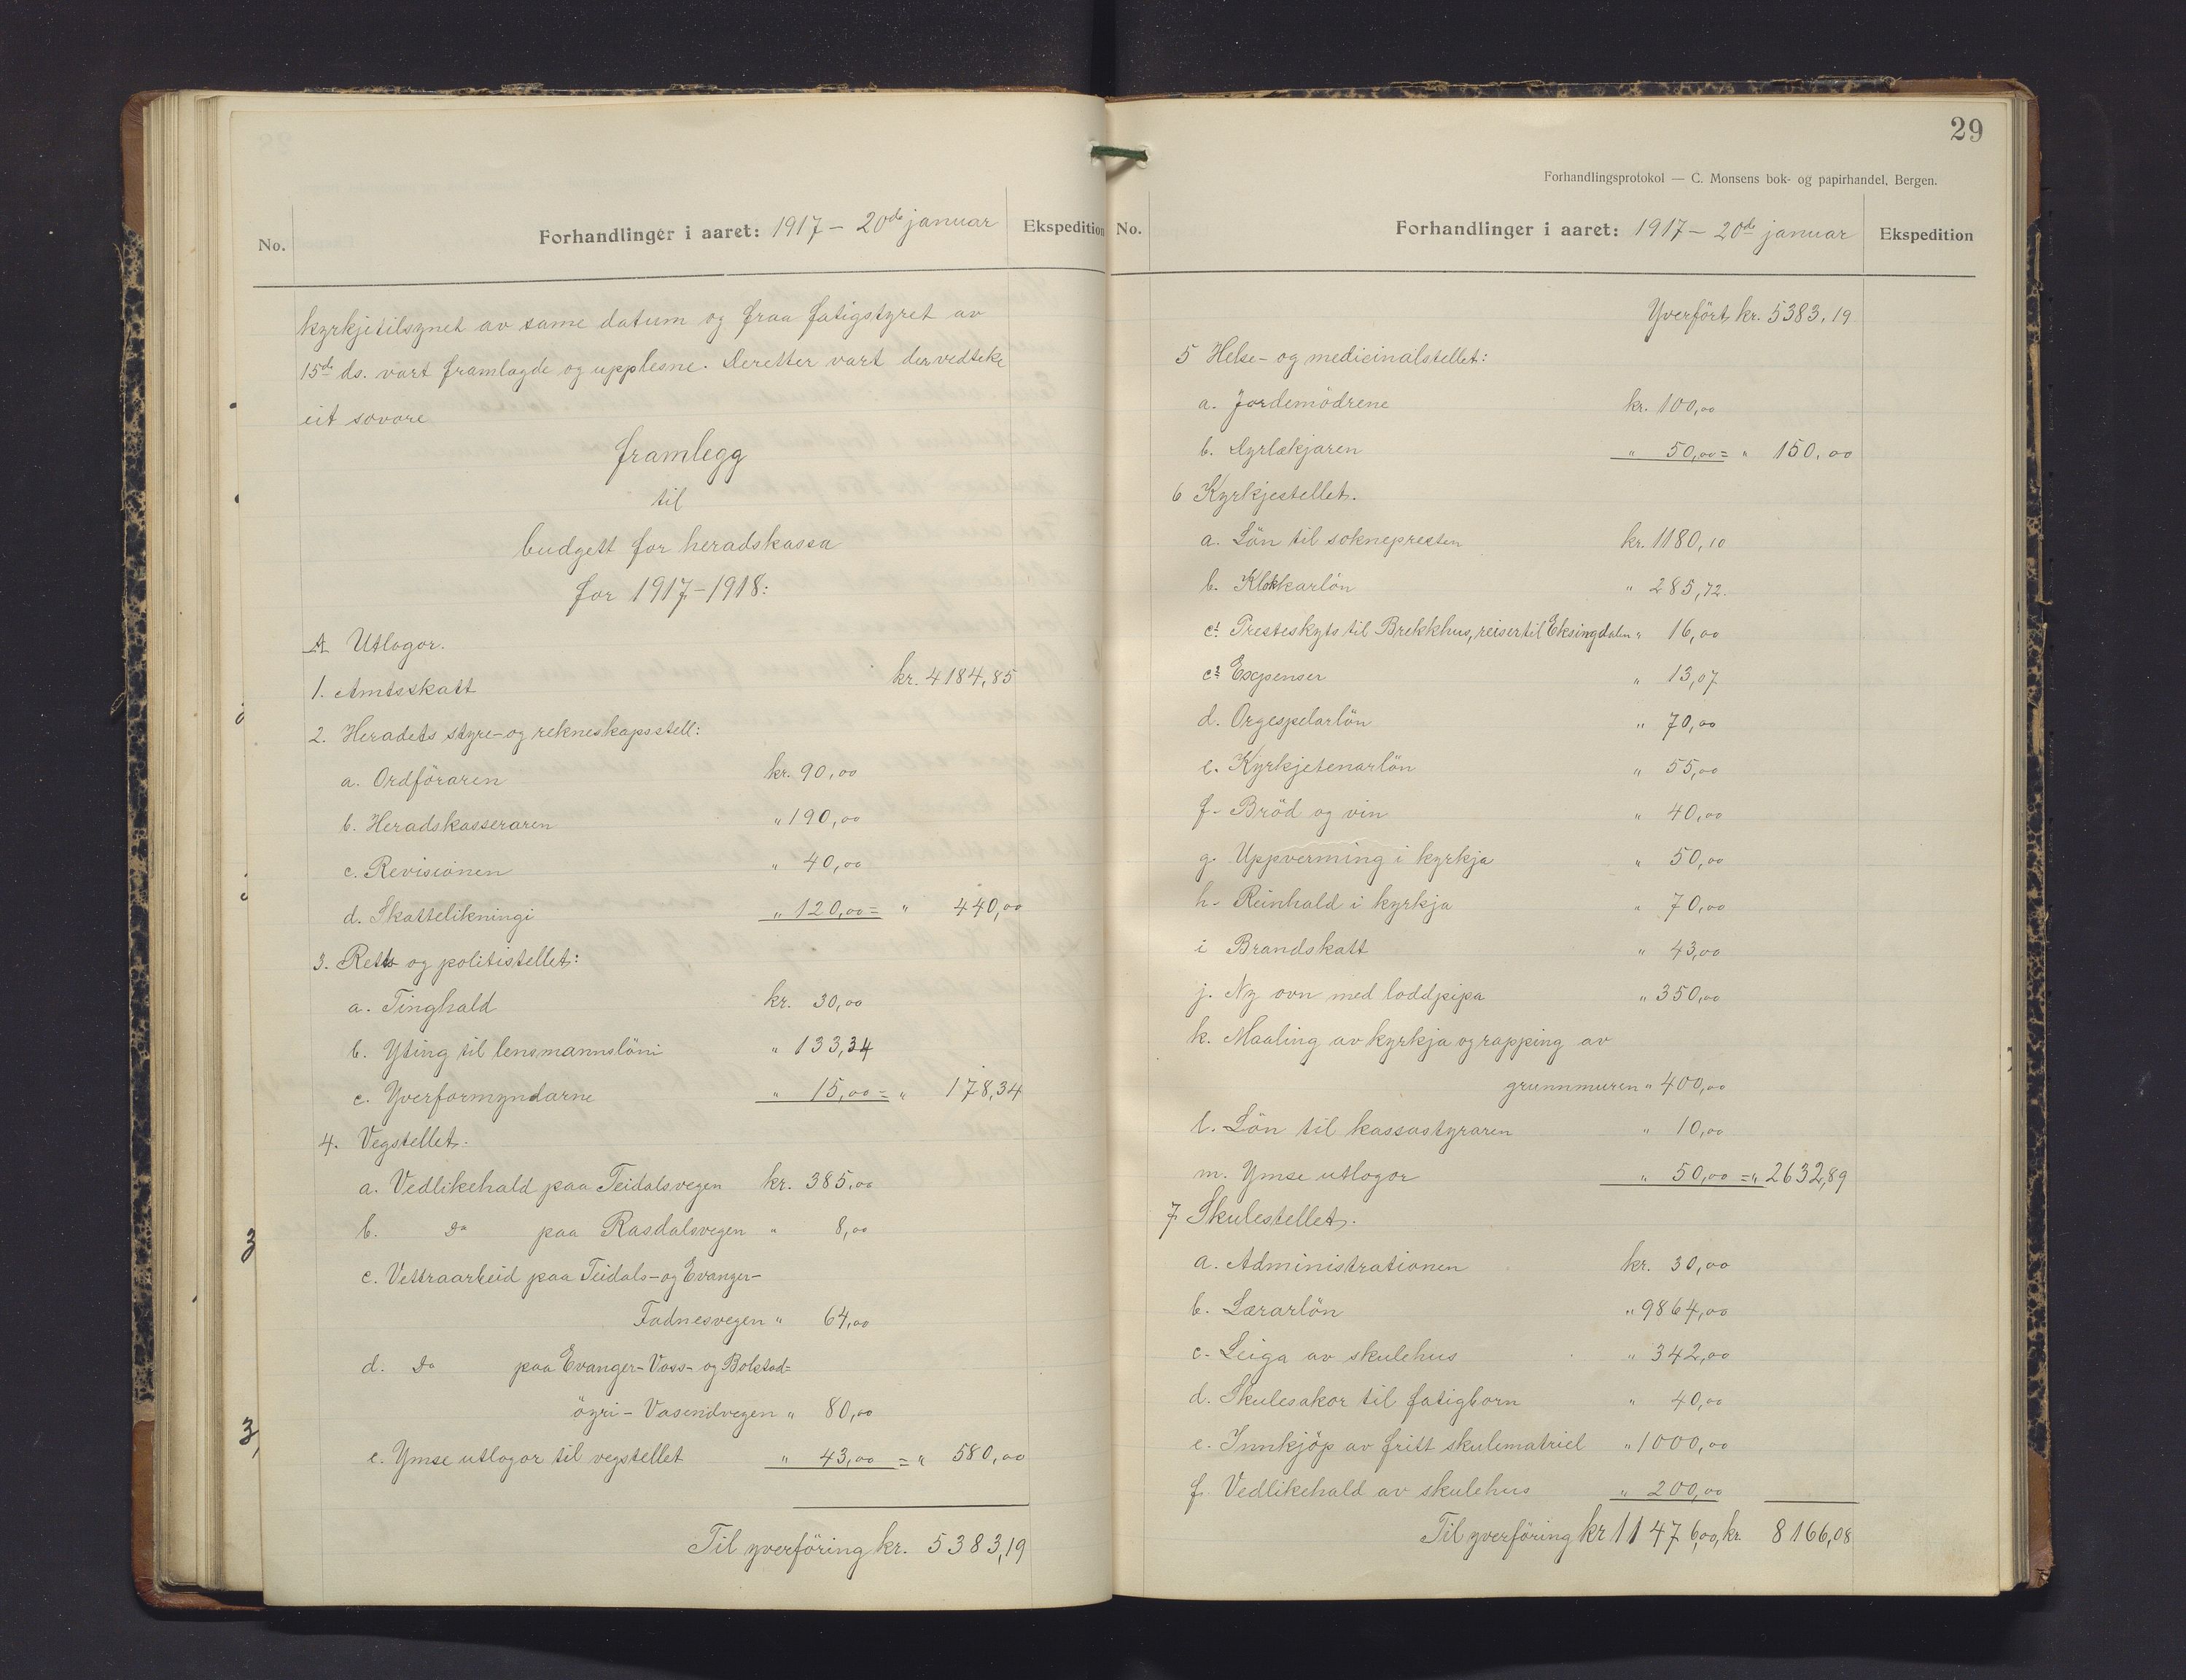 No.
Forhandlinger i aaret: 1917 – 20de januar
Ekspedition
kyrkjetilsynet av same datum og fraa fatigstyret av
15de ds. vart framlagde og upplesne. Deretter vart der vedteke
eit sovore
framlegg
til
budgett for heradskassa
for 1917–1918:
A Utlogor.
1. Amtsskatt kr. 4184,85
2. Heradets styre- og rekneskapsstell:
a. Ordföraren kr. 90,00
b. Heradskasseraren " 190,00
c. Revisionen " 40,00
d. Skattelikningi " 120,00 = " 440,00
3. Retts og politistellet:
a. Tinghald kr. 30,00
b. Yting til lensmannslöni " 133,34
c. Yverformyndarne " 15,00 = " 178,34
4. Vegstellet.
a. Vedlikehald paa Teidalsvegen kr. 385,00
b. Do paa Rasdalsvegen " 8,00
c. Vettraarbeid paa Teidals- og Evanger-
Fadnesvegen " 64,00
d. Do paa Evanger- Voss- og Bolstad=
öyri- Vasendvegen " 80,00
e. Ymse utlogor til vegstellet " 43,00 = " 580,00
Til yverföring kr. 5383,19
29
Forhandlingsprotokol — C. Monsens bok- og papirhandel, Bergen.
No.
Forhandlinger i aaret: 1917 – 20de januar
Ekspedition
Yverfört kr. 5383,19
5 Helse- og medicinalstellet:
a. Jordemödrene kr. 100,00
b. Dyrlækjaren " 50,00 = " 150,00
6 Kyrkjestellet.
a. Lön til soknepresten kr. 1180,10
b. Klokkarlön " 285,72.
c1. Presteskyts til Brekkhus, reiser til Eksingdalen " 16,00
c2 Expenser " 13,07
d. Orgespelarlön " 70,00
e. Kyrkjetenarlön " 55,00
f- Bröd og vin " 40,00
g. Uppverming i kyrkja " 50,00
h- Reinhald i kyrkja " 70,00
i Brandskatt " 43,00
j. Ny ovn med loddpipa " 350,00
k. Maaling av kyrkja og rapping av
grunnmuren " 400,00
l. Lön til kassastyraren " 10,00
m. Ymse utlogor " 50,00 = " 2632,89
7. Skulestellet.
a. Administrationen kr. 30,00
b. Lærarlön " 9864,00
c- Leiga av skulehus " 342,00
d. Skulesakor til fatigborn " 40,00
e. Innkjöp av fritt skulematriel " 1000,00
f. Vedlikehald av skulehus " 200,00
Til yverföring kr 11476,00, kr. 8166,08